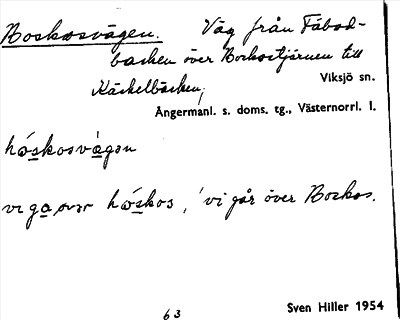 Boskosvägen. Väg från Fäbod-
backen över Borkostjärnen till
Käckelbäcken;
Viksjö sn.
Ångermanl. s. doms. tg., Västernorrl. l.
bóskosvägən
vi ga övər bóskos, 'vi går över Boskos.
63
Sven Hiller 1954